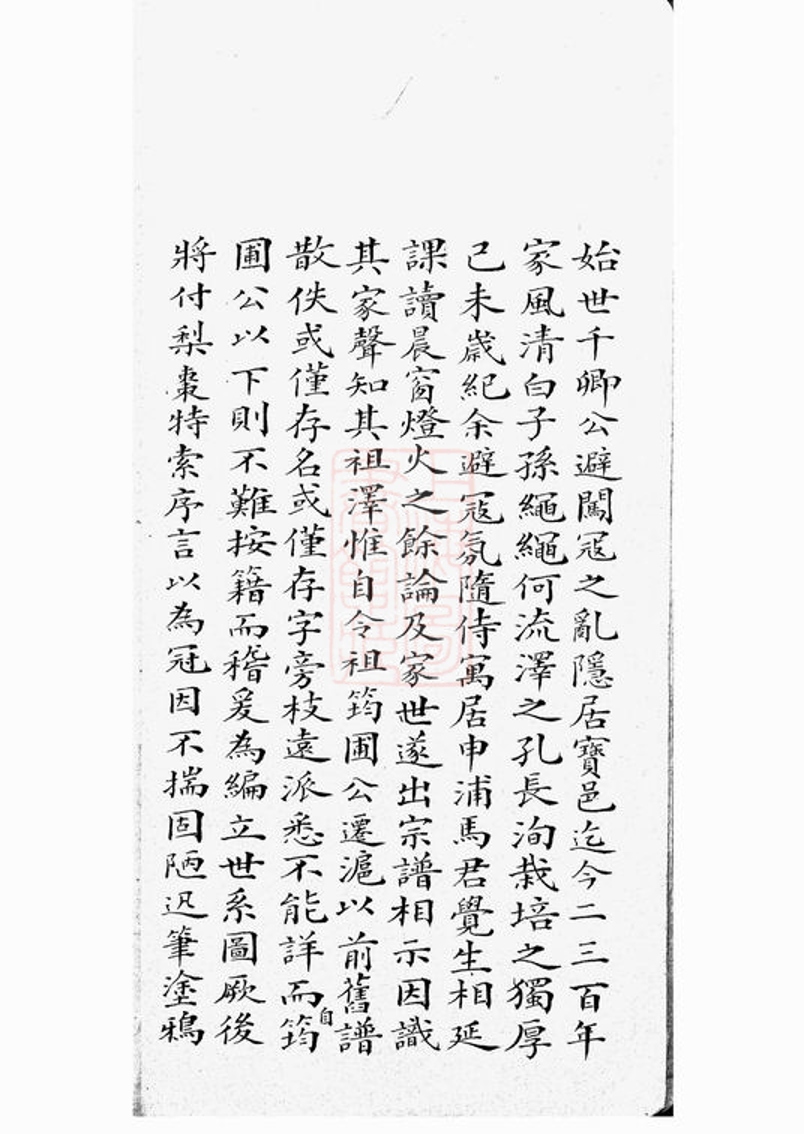 始世千卿公避闖冦之亂隱居寶邑迄今二三百年
家風清白子孫繩繩何流澤之孔長洵栽培之獨厚
己未嵗紀余避冦氛隨侍寓居申浦馬君覺生相延
課讀晨窗燈火之餘論及家世遂出宗譜相示因識
其家聲知其祖澤惟自令祖筠圃公遷滬以前舊譜
散佚或僅存名或僅存字旁枝遠派悉不能詳而自筠
圃公以下則不難按籍而稽爰為編立世系圖厥後
將付梨棗特索序言以為冠因不揣固陋迅筆塗鴉